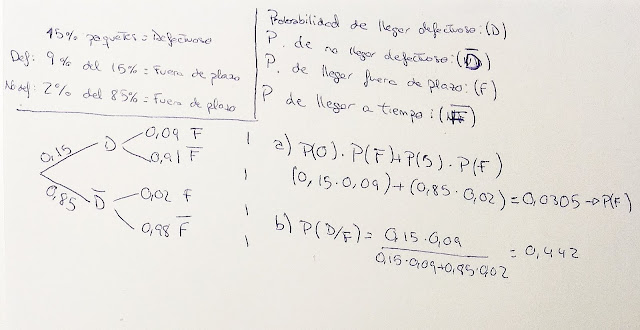 15% paquetes = Defectuoso
Def: 9% del 15% = Fuera de plazo
No def: 2% del 85% = Fuera de plazo
Probabilidad de llegar defectuoso: (D)
P. de no llegar defectuoso: (D̅)
P. de llegar fuera de plazo: (F)
P de llegar a tiempo: (F̅)
0,15 D 0,09 F
0,91 F̅
0,85 D̅ 0,02 F
0,98 F̅
a) P(D) · P(F) + P(D̅) · P(F)
(0,15 · 0,09) + (0,85 · 0,02) = 0,0305 → P(F)
b) P(D/F) = 0,15 · 0,09 = 0,442
0,15 · 0,09 + 0,85 · 0,02